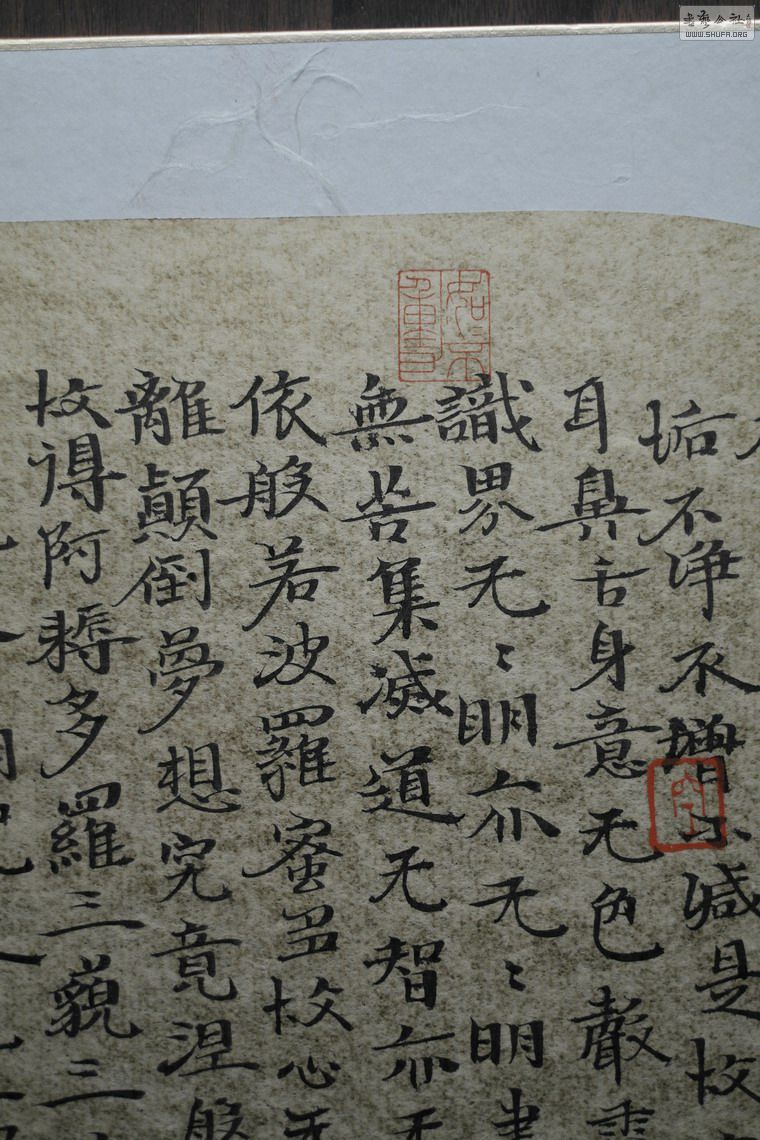 垢不净不增不減是故
耳鼻舌身意无色聲香
識界无〻明亦无〻明
無苦集滅道无智亦无
依般若波羅蜜多故心无
離顛倒夢想究竟涅般
故得阿耨多羅三藐三
空
WWW.SHUFA.ORG